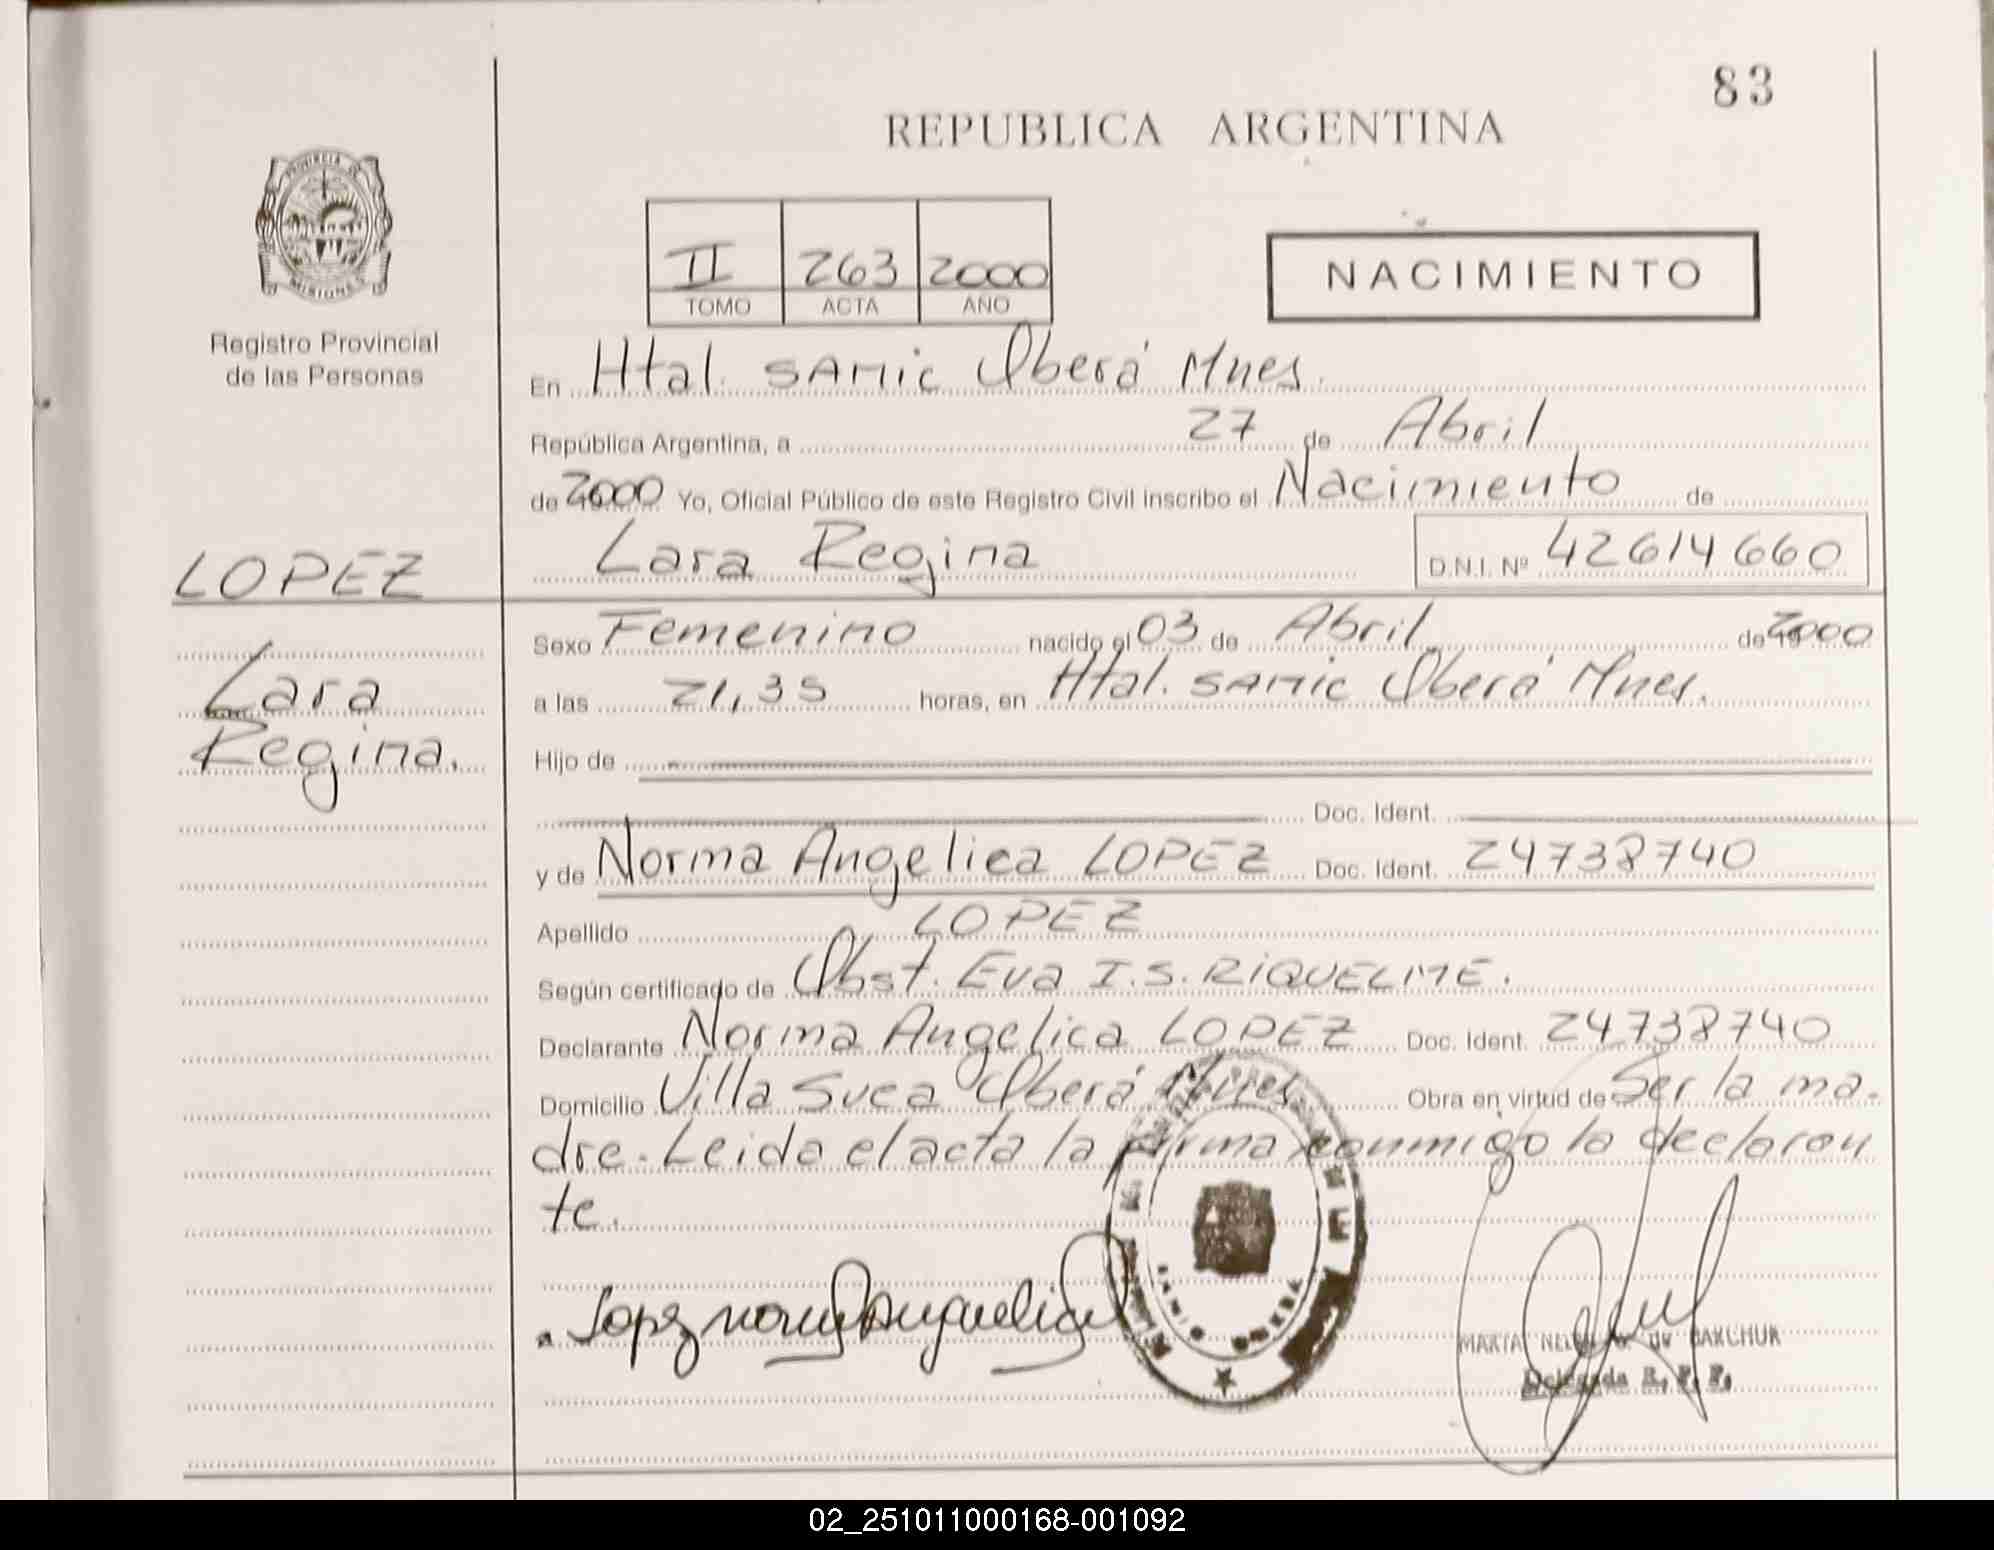 83
REPUBLICA ARGENTINA
PROVINCIA DE
MISIONES
Registro Provincial
de las Personas
II 263 2000
TOMO ACTA AÑO
NACIMIENTO
En Htal. SAMIC Oberá Mnes.
República Argentina, a 27 de Abril
de 2000 Yo, Oficial Público de este Registro Civil inscribo el Nacimiento de
Lara Regina D.N.I. Nº 42614660
LOPEZ
Lara
Regina.
Sexo Femenino nacido el 03 de Abril de 2000
a las 21,35 horas, en Htal. SAMIC Oberá Mnes.
Hijo de
Doc. Ident.
y de Norma Angelica LOPEZ Doc. Ident. 24738740
Apellido LOPEZ
Según certificado de Obst. Eva I.S. RIQUELME.
Declarante Norma Angelica LOPEZ Doc. Ident. 24738740
Domicilio Villa Svea Oberá Mnes. Obra en virtud de Ser la ma-
dre. Leida el acta la firma conmigo la declaran
te.
Lopez Norma Anguelica
MARIA DE BAXCHUK
Delegada R. P. P.
02_251011000168-001092